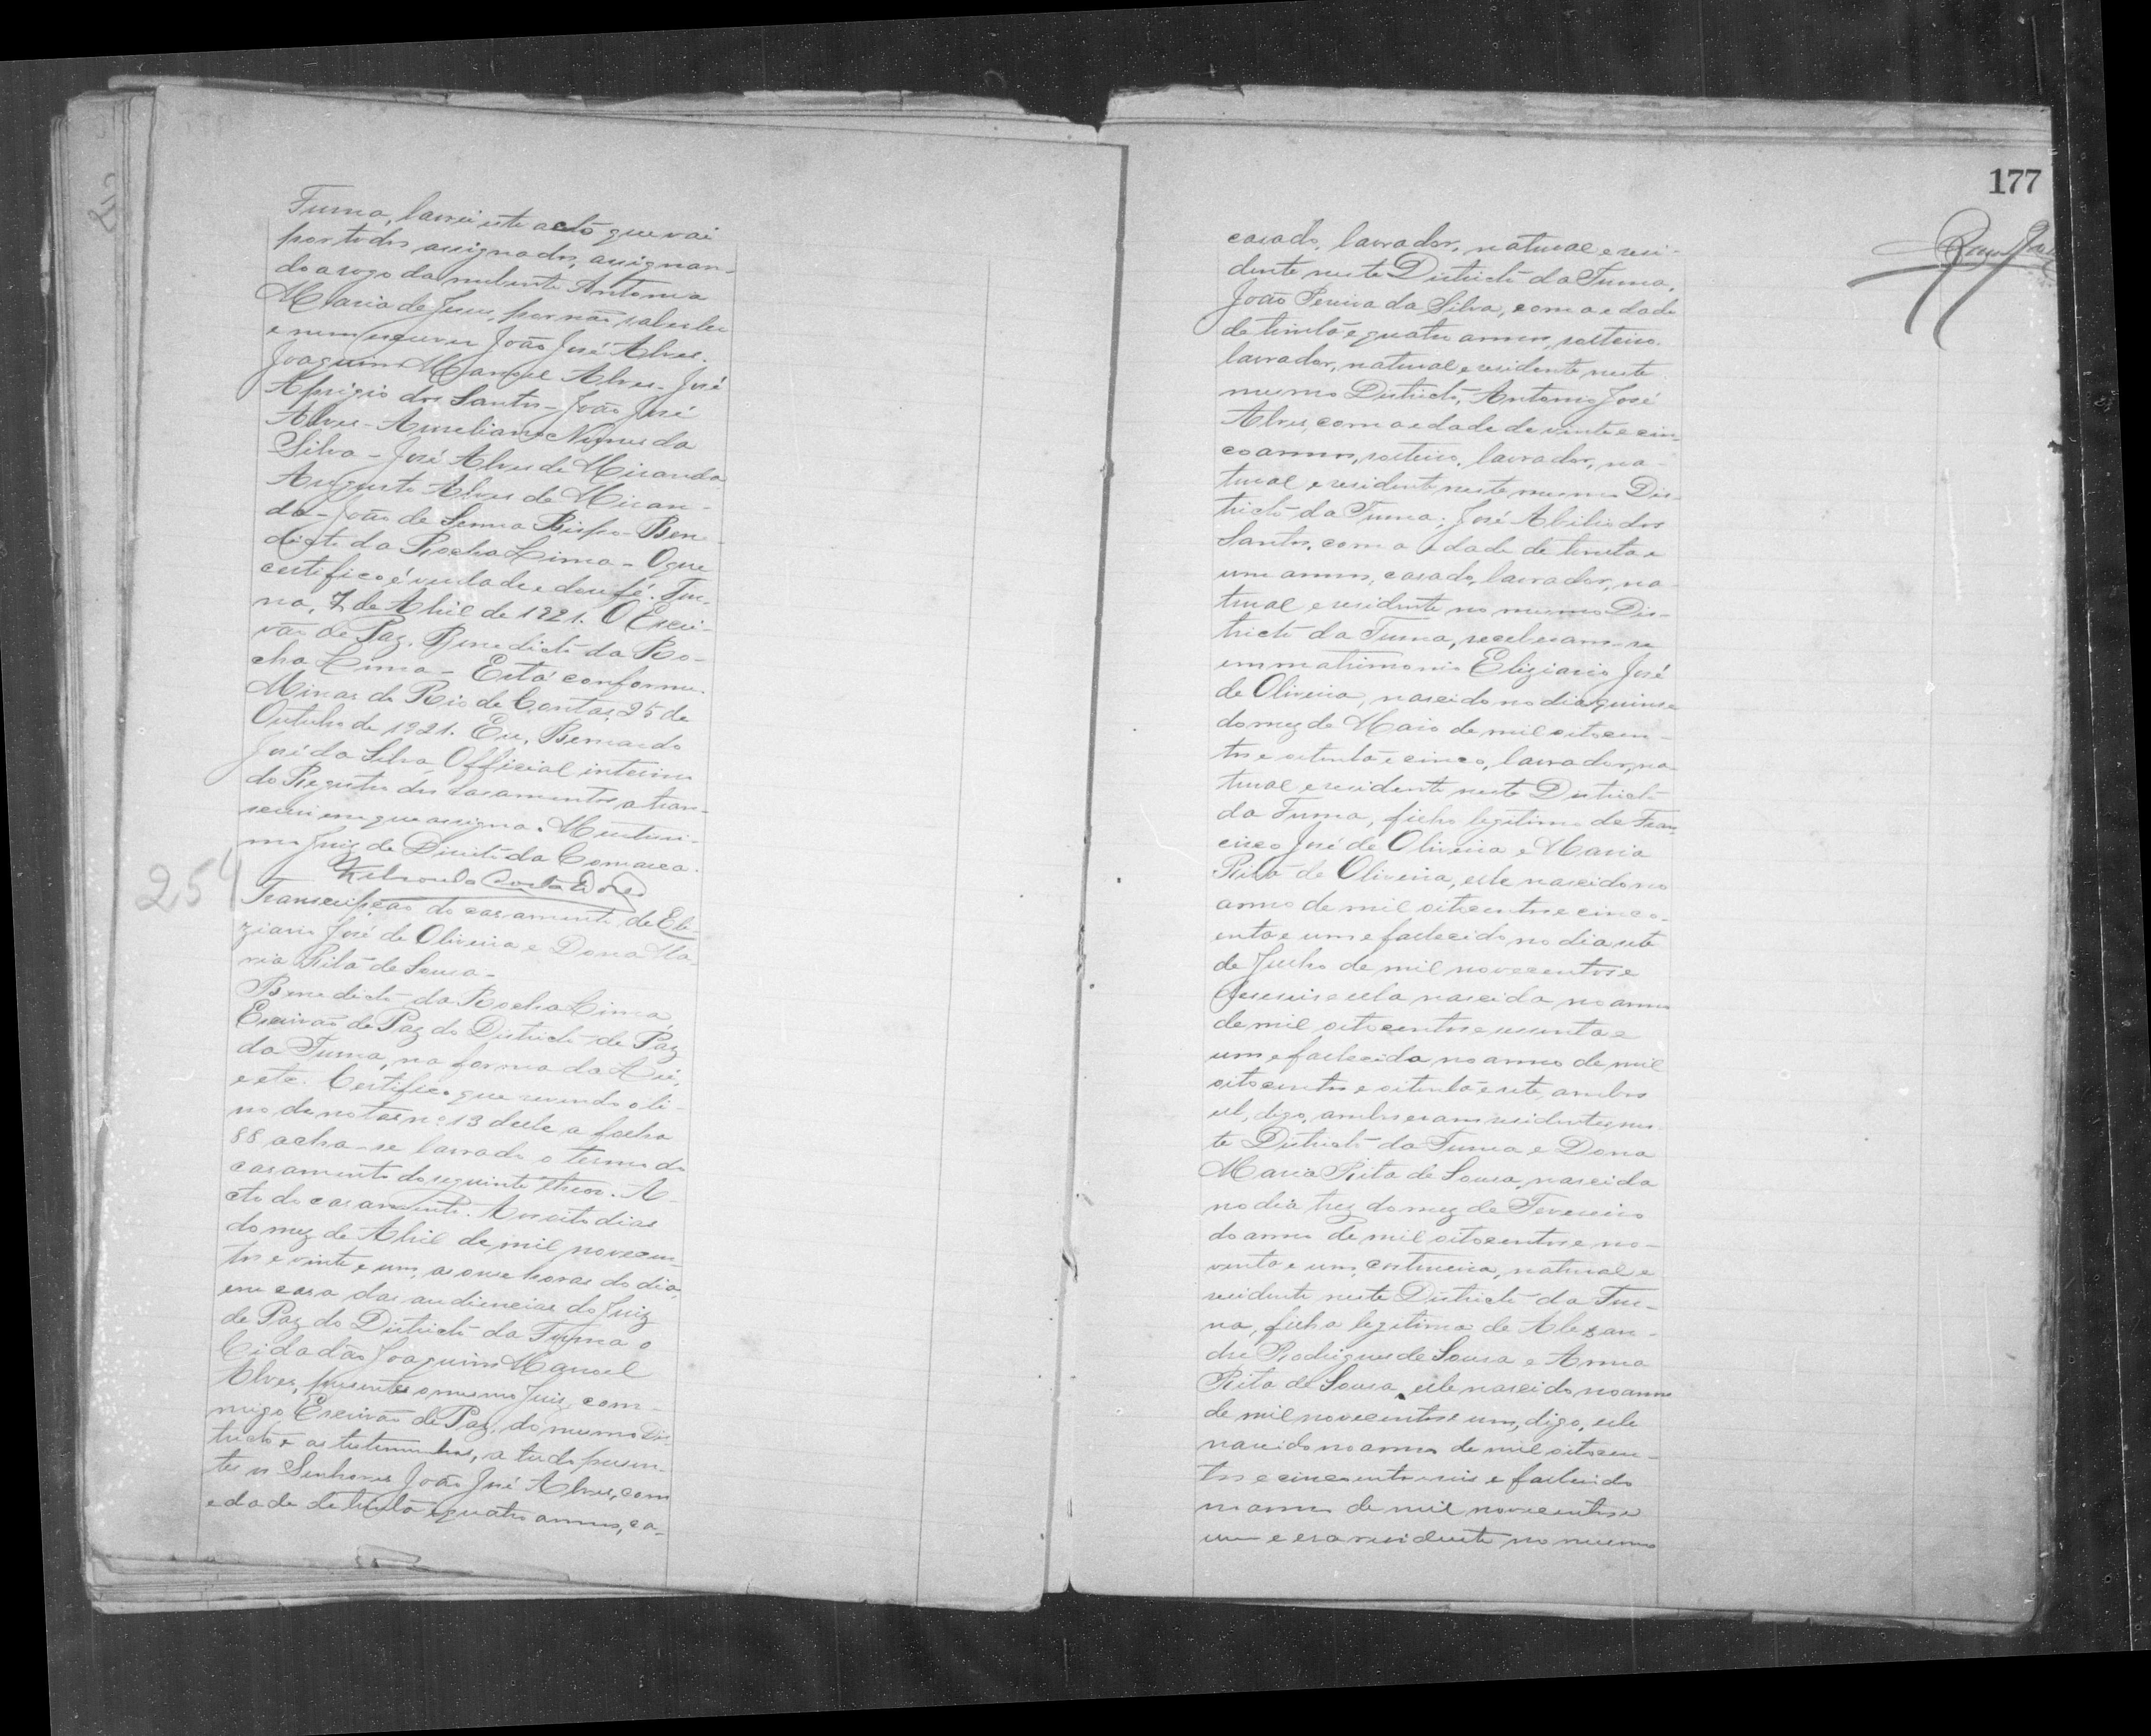 Furna, lavrei este acto que vai
por todos assignados, assignan-
do a rogo da nubente Antonia
Maria de Jesus, por não saber ler
e nem escrever João José Alves.
Joaquim Manoel Alves - José
Aprigio dos Santos - João José
Alves - Aureliano Nunes da
Silva - José Alves de Miranda
Augusto Alves de Miran-
da - João de Senna Bispo - Bene-
dicto da Rocha Lima - O que
certifico é verdade e dou fé. Fur-
na, 7 de Abril de 1921. O Escri-
vão de Paz, Benedicto da Ro-
cha Lima - Está conforme
Minas do Rio de Contas, 25 de
Outubro de 1921. Eu, Bernardo
José da Silva, Official interino
do Registro dos casamentos a trans-
screvi em que assigna o Meritissi-
mo Juiz de Direito da Comarca.
254
Transcripção do casamento de Eli-
ziario José de Oliveira e Dona Ma-
ria Rita de Sousa -
Benedicto da Rocha Lima,
Escrivão de Paz do Districto de Paz
da Furna, na forma da Lei,
e etc. Certifico que revendo o li-
vro de notas nº 13 delle a folha
88 acha-se lavrado o termo do
casamento do seguinte theor. A-
cto do casamento. Aos oito dias
do mez de Abril de mil novecen-
tos e vinte e um, as onse horas do dia,
em casa das audiencias do Juiz
de Paz do Districto da Furna o
Cidadão Joaquim Manoel
Alves, presentes o mesmo Juiz, com-
migo Escrivão de Paz, do mesmo Dis-
tricto e as testemunhas, a tudo presen-
tes os Senhores João José Alves, com
edade de trinta e quatro annos, ca-
177
casado, lavrador, natural e resi-
dente neste Districto da Furna,
João Pereira da Silva, com a edade
de trinta e quatro annos, solteiro,
lavrador, natural e residente neste
mesmo Districto, Antonio José
Alves, com a edade de vinte e cin-
co annos, solteiro, lavrador, na-
tural e residente neste mesmo Dis-
tricto da Furna; José Abilio dos
Santos, com a edade de trinta e
um annos, casado, lavrador, na-
tural e residente no mesmo Dis-
tricto da Furna, receberam-se
em matrimonio Eliziario José
de Oliveira, nascido no dia quinse
do mez de Maio de mil oitocen-
tos e oitenta e cinco, lavrador, na-
tural e residente neste Districto
da Furna, filho legitimo de Fran-
cisco José de Oliveira e Maria
Rita de Oliveira, elle nascido no
anno de mil oitocentos e cinco-
enta e um e fallecido no dia sete
de Julho de mil novecentos e
deseseis e ella nascida no anno
de mil oitocentos e sessenta e
um e fallecida no anno de mil
oitocentos e oitenta e sete, ambos
el, digo, ambos eram residentes nes-
te Districto da Furna e Dona
Maria Rita de Sousa, nascida
no dia trez do mez de Fevereiro
do anno de mil oitocentos e no-
venta e um, costureira, natural e
residente neste Districto da Fur-
na, filha legitima de Alexan-
dre Rodrigues de Sousa e Anna
Rita de Sousa, elle nascido no anno
de mil novecentos e um, digo, elle
nascido no anno de mil oitocen-
tos e cincoenta e seis e fallecido
no anno de mil novecentos e
um e era residente no mesmo